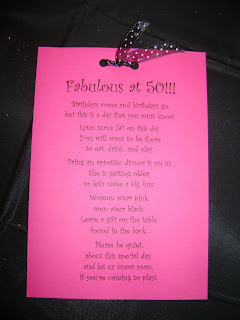 Fabulous at 50!!!
Birthdays come and birthdays go,
but this is a day that you must know.
Lynn turns 50 on this day
You will want to be there
to eat, drink, and play
Bring an appetite, dinner is on us
She is getting older,
so let's make a big fuss.
Women wear pink,
men wear black
Leave a gift on the table
found in the back
Please be quiet,
about this special day
and let us know soon,
if you're coming to play!